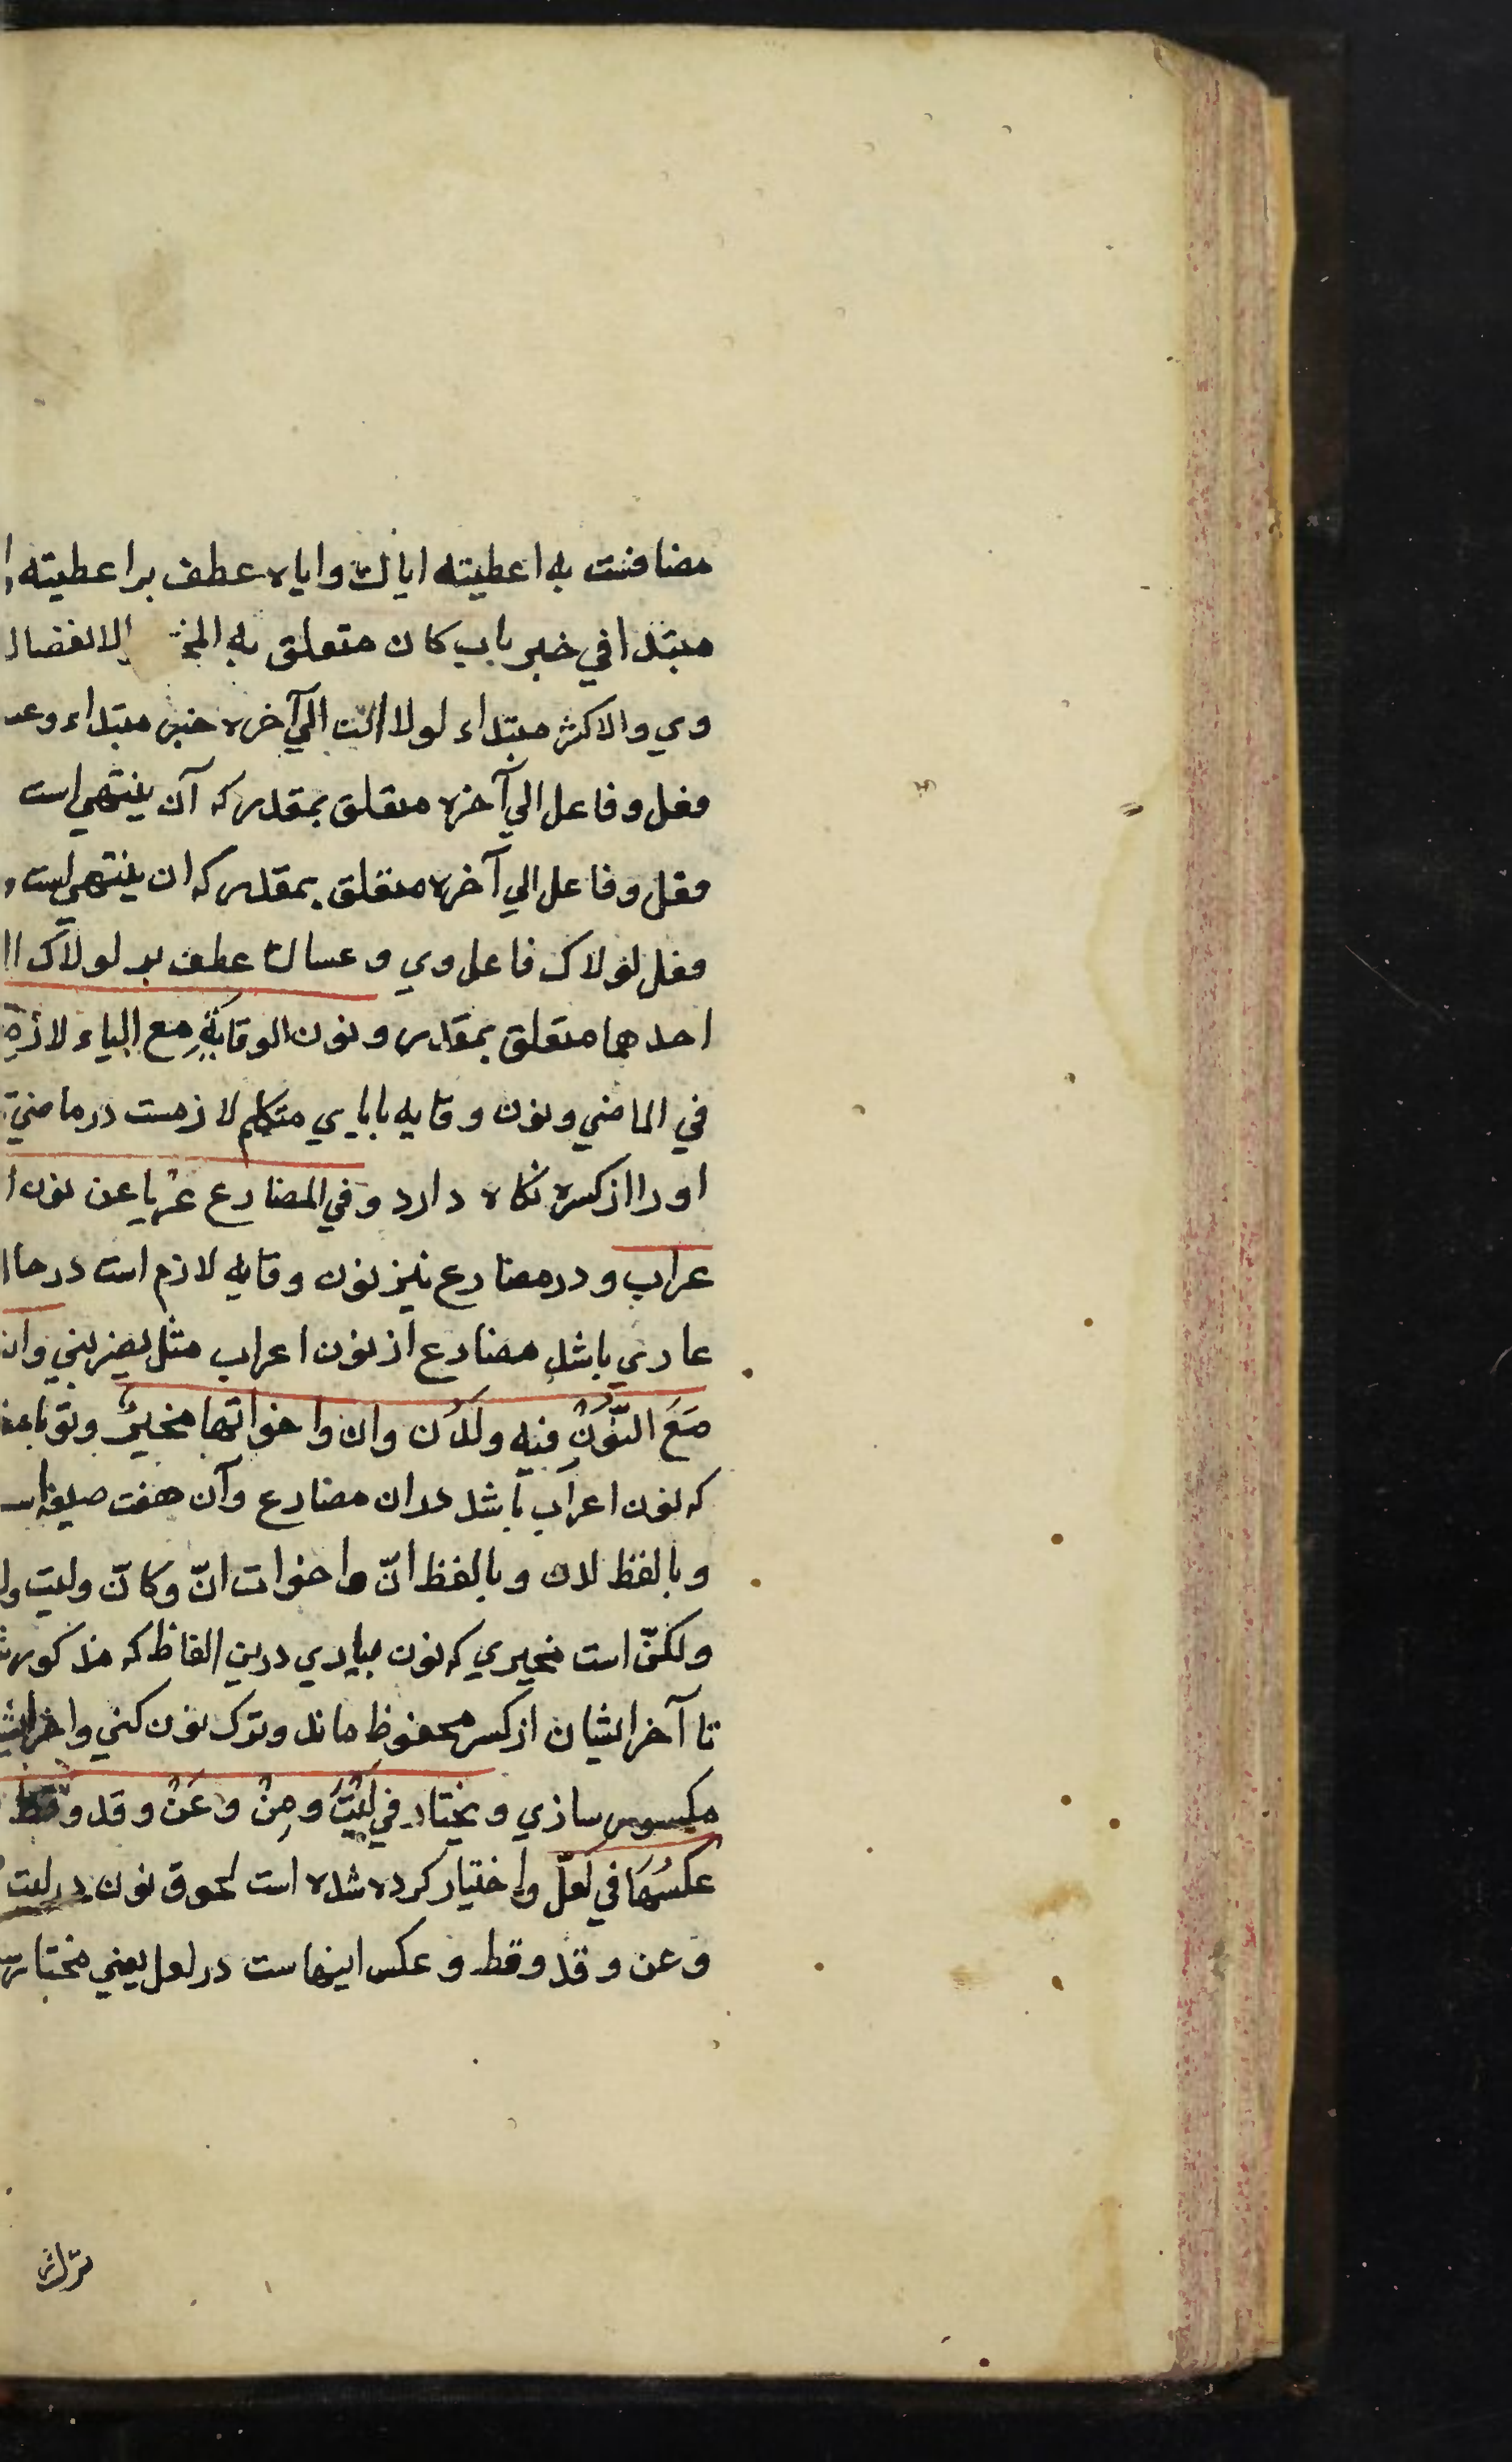 مضافست به اعطیته ایاك وایاه عطف بر اعطیته
مبتدا في خبر باب کان متعلق به المخ الانفصال
وي والاکثر مبتداء لولا انت الي آخره خبر مبتداء وعد
فعل وفاعل الي آخره متعلق بمقدر که آن ینتهي است
فعل وفاعل الي آخره متعلق بمقدر که ان ینتهي است و
فعل لولاک فاعل وي و عساك عطف بر لولاک
احدهما متعلق بمقدر و نون الوقایةِ مع الیاء لازمة
في الماضي ونون وقایه بایاي متکلم لازمست در ماضي
اورا از کسره نکاه دارد وفي المضارع عریا عن نون ا
عراب و در مضارع نیز نون وقایه لازم است در حا
عاري باشد مضارع از نون اعراب مثل یضربني وان
مَعَ النُّونِ فیه ولَدُن وان واخواتها مخیرٌ وتو با
که نون اعراب باشد دران مضارع وآن هفت صیغه
وبالفظ لدن وبالفظ انّ واخوات انّ وکانّ ولیت ول
ولکنّ است مخیري که نون بیاري درین الفاظ که مذکور
تا آخر ایشان از کسر محفوظ ماند وترک نون کني واخر
مکسور سازي و یختار في لَیْتَ و مِنْ وَ عَنْ و قد و قط
عکسُهَا في لعلّ واختیار کرده شده است لحوق نون در لیت
وعن و قد و قط و عکس اینهاست در لعل یعني مختار
ترك